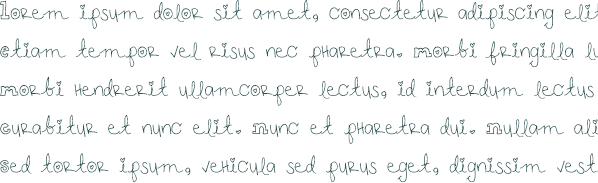 Lorem ipsum dolor sit amet, consectetur adipiscing elit
Etiam tempor vel risus nec pharetra. Morbi fringilla lu
Morbi hendrerit ullamcorper lectus, id interdum lectus
Curabitur et nunc elit. Nunc et pharetra dui. Nullam ali
Sed tortor ipsum, vehicula sed purus eget, dignissim vest